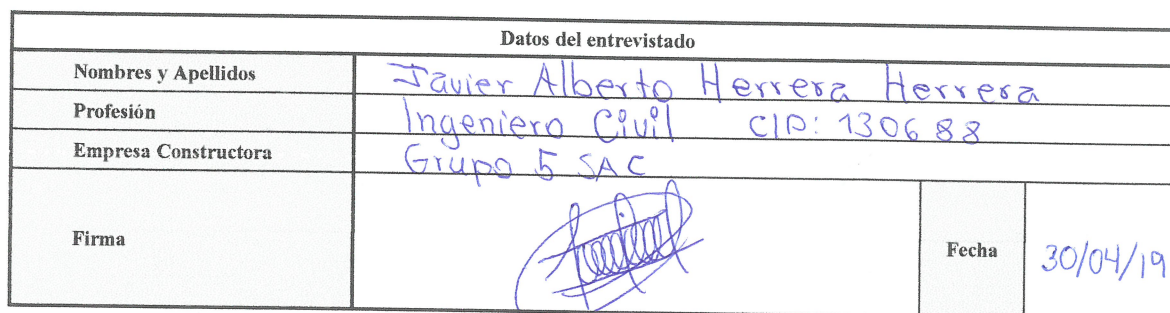 Datos del entrevistado
Nombres y Apellidos Javier Alberto Herrera Herrera
Profesión Ingeniero Civil CIP: 130688
Empresa Constructora Grupo 5 SAC
Firma Fecha 30/04/19